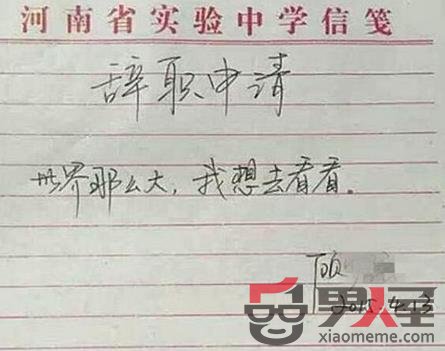 河南省实验中学信笺
辞职申请
世界那么大，我想去看看。
顾
2015.4.13
男人圣
xiaomeme.com